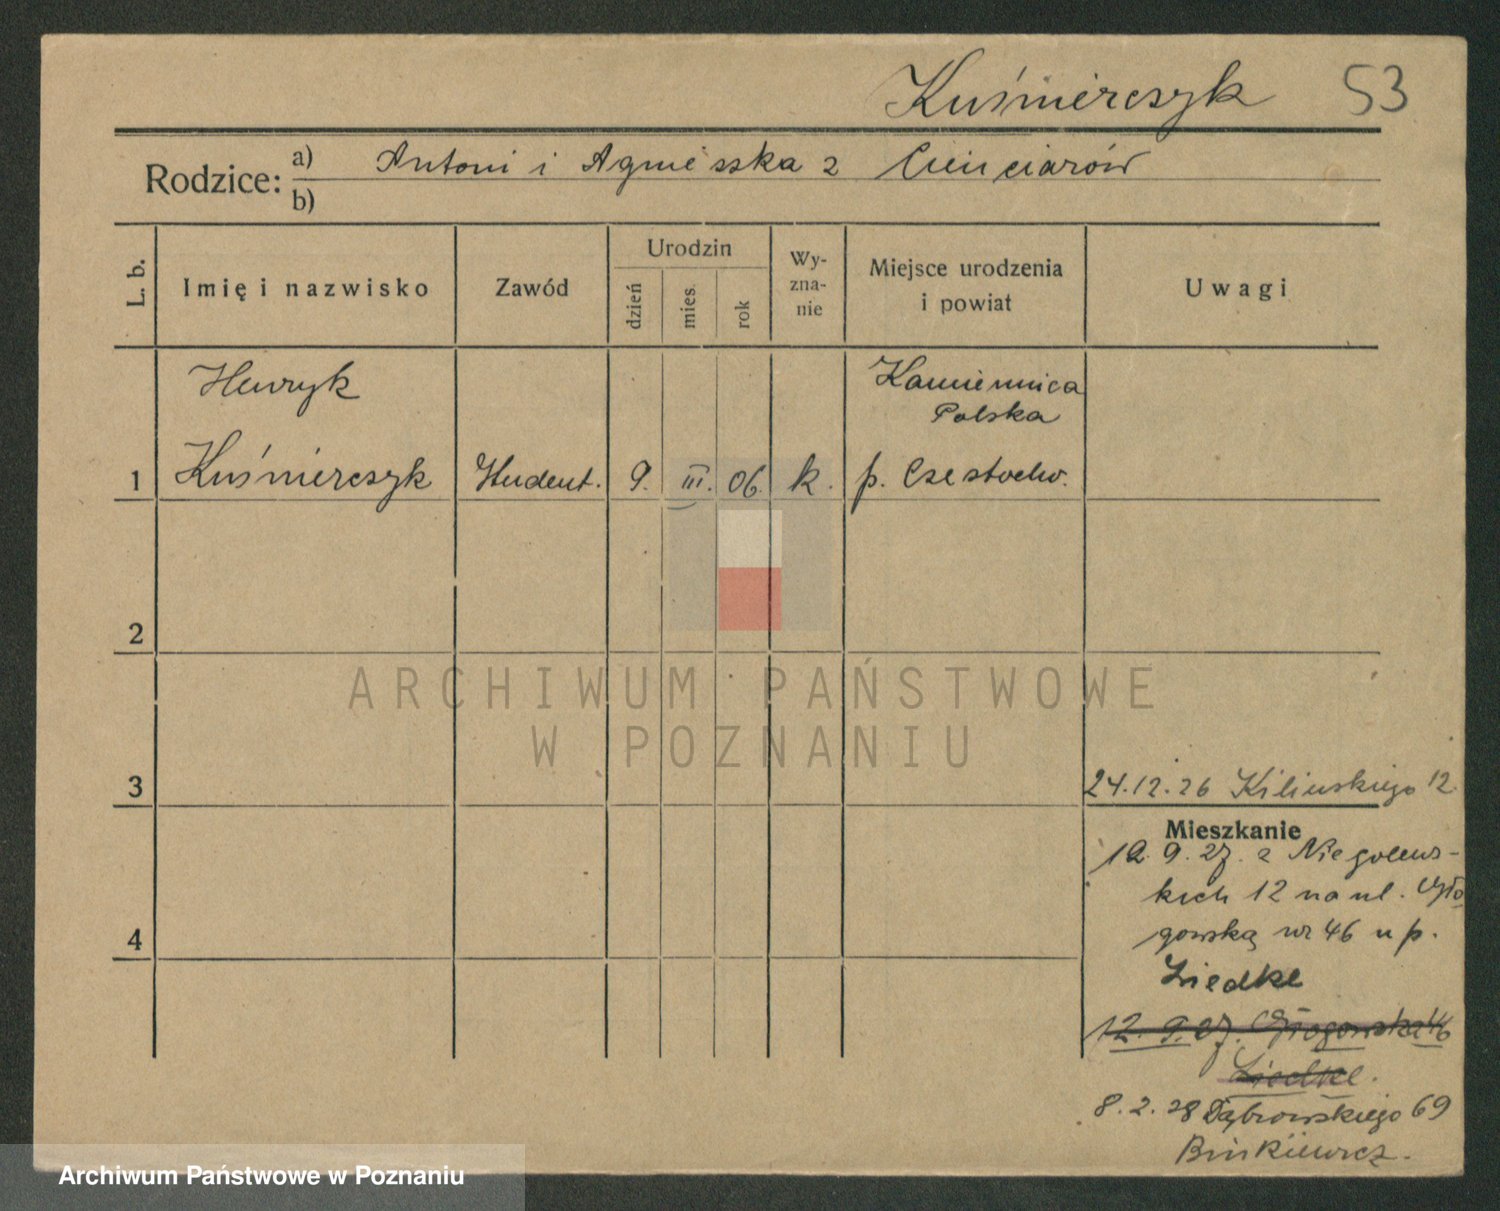 Kuśmierczyk 53
Rodzice: a) Antoni i Agnieszka z Cienciarów
b)
L. b.
Imię i nazwisko
Zawód
Urodzin
dzień
mies.
rok
Wy-
zna-
nie
Miejsce urodzenia
i powiat
Uwagi
Henryk
Kamiennica
Polska
1 Kuśmierczyk Student. 9. III. 06. k. p. Czestochw.
2
3
4
ARCHIWUM PAŃSTWOWE
W POZNANIU
24.12.26 Kilinskiego 12.
Mieszkanie
12.9.27. z Niegolews-
kich 12 na ul. Gło
gowską nr 46 u p.
Liedke
12.9.27. Głogowska 46
Liedke.
8.2.28 Dąbrowskiego 69
Binkiewicz.
Archiwum Państwowe w Poznaniu